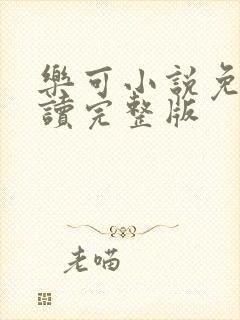 樂可小說免
讀完整版
老喵